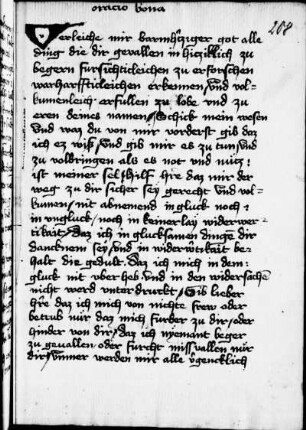 oracio bona
208
Verleiche mir barmhercziger got alle
ding die dir gevallen in hicziklich zu
begern fursichticleichen zu erforschen
warhafticleichen erkennen und vol-
kumenleich erfullen zu lobe und zu
eren deines namen / Schick mein wesen
Und waz du von mir vorderst gib daz
ich ez wiss / Und gib mir es zu tun Und
zu volbringen als es not und nucz
ist meiner sel / hilf hre daz mir der
weg zu dir sicher sey gerecht Und vol-
kumen / nit abnemend in gluck noch
in ungluck / noch in keinerlay widerwer-
tikait / Daz ich in glucksamen dinge dir
dancknem sey / Und in widerwertikait be-
halt die gedult. Daz ich mich in dem
gluck nit uber heb Und in den widersachen
nicht werd unterdruckt / Gib lieber
hre daz ich mich von nichte frew oder
betrub nur daz mich furder zu dir / oder
hinder von dir / daz ich nyemant beger
zu gevallen oder furcht missvallen nur
dir / Unmer werden mir alle zergencklich